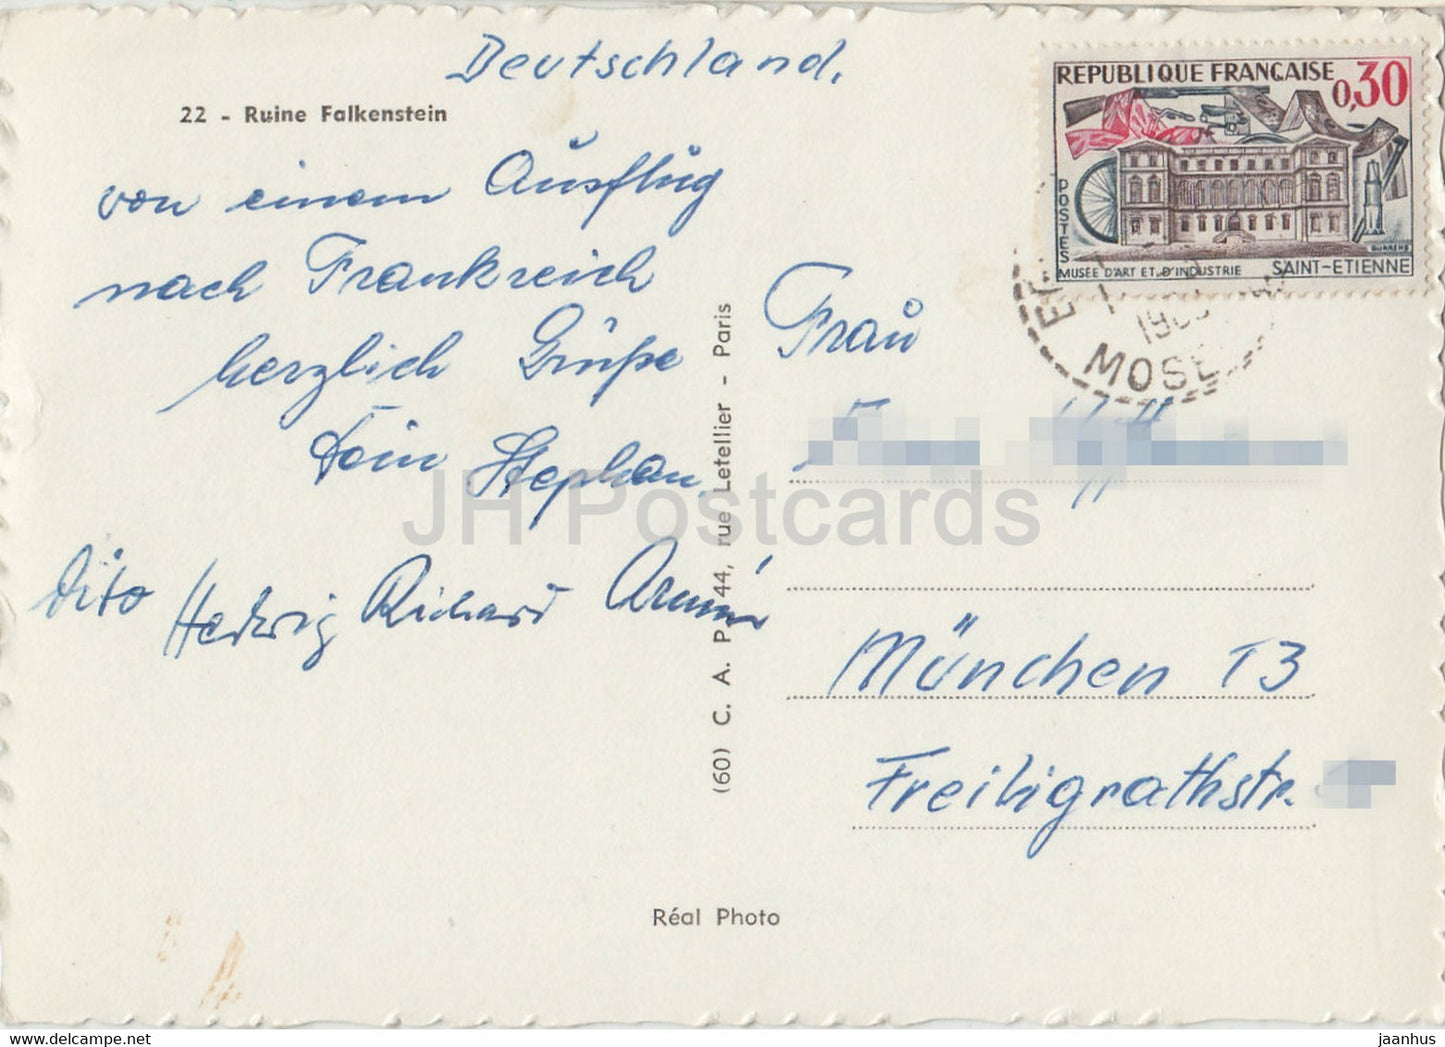 Deutschland.
22 - Ruine Falkenstein
von einem Ausflug
nach Frankreich
herzlich Grüße
Dein Stephan.
dito Hedwig Richard Armin
(60) C. A. P. 44, rue Letellier - Paris
REPUBLIQUE FRANÇAISE
0,30
POSTES
MUSÉE D'ART ET D'INDUSTRIE SAINT-ETIENNE
MOSE
Frau
München 13
Freiligrathstr.
Réal Photo
JH Postcards
jaanhus @ delcampe.net